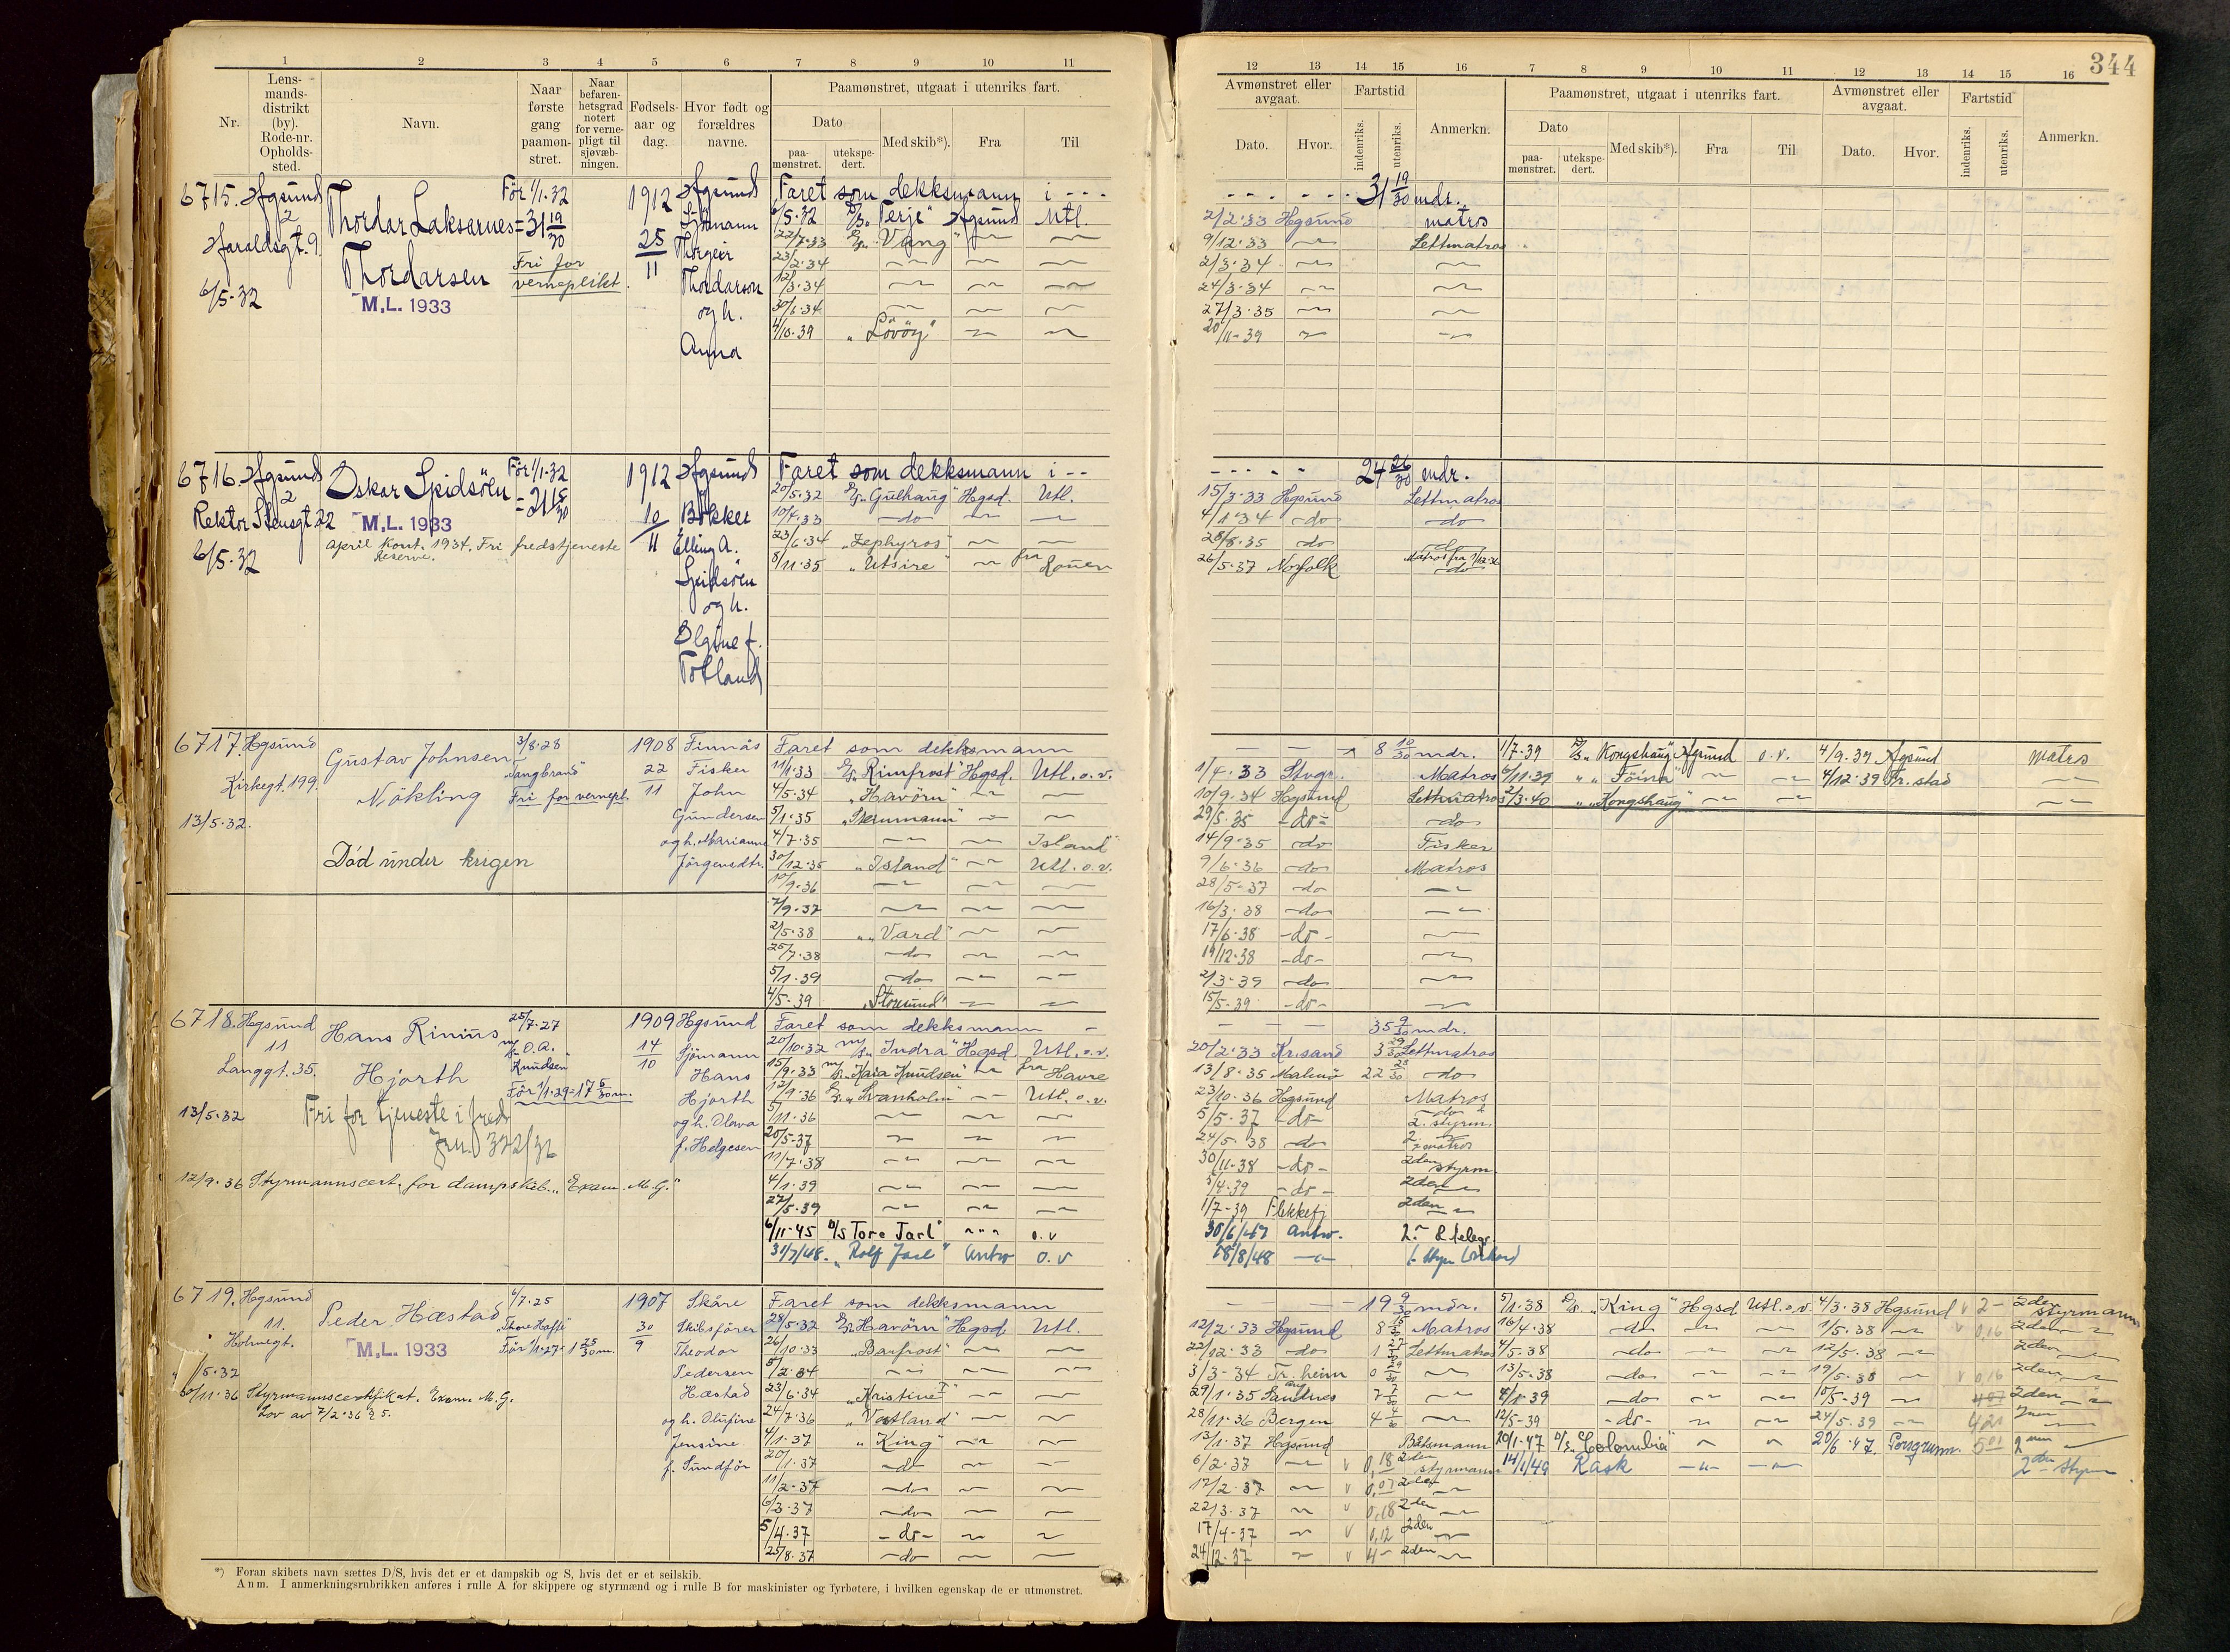 344
1 2 3 4 5 6 7 8 9 10 11
Nr.
Lens-
mands-
distrikt
(by).
Rode-nr.
Opholds-
sted.
Navn.
Naar
første
gang
paamøn-
stret.
Naar
befaren-
hetsgrad
notert
for verne-
pligt til
sjøvæb-
ningen.
Fødsels-
aar og
dag.
Hvor født og
forældres
navne.
Paamønstret, utgaat i utenriks fart.
Dato
paa-
mønstret.
utekspe-
dert.
Med skib*).
Fra
Til
12 13 14 15 16 7 8 9 10 11 12 13 14 15 16
Avmønstret eller
avgaat.
Dato. Hvor.
Fartstid
indenriks. utenriks.
Anmerkn.
Paamønstret, utgaat i utenriks fart.
Dato
paa-
mønstret.
utekspe-
dert.
Med skib*). Fra Til
Avmønstret eller
avgaat.
Dato. Hvor.
Fartstid
indenriks. utenriks.
Anmerkn.
6715. Hgsund
2
Haraldsgt. 9.
6/5-32
Thordar Laksarnes
Thordarsen
M.L. 1933
Før 1/1.32
= 31 19/30
Fri for
verneplikt.
1912
25/11
Hgsund
Sjömann
Thorgeir
Thordarson
og h.
Anna
Faret som dekksmann i - - - 31 19/30 mdr.
6/5.32 D/S "Terje" Hgsund Utl. 2/2.33 Hgsund matros
22/7.33 D/S "Vang" 9/12.33 Lettmatros
23/2.34 2/3.34
12/3.34 24/3.34
30/6.34 27/3.35
4/10.39 "Lövöy" 20/11-39
6716. Hgsund
2
Rektor Stensgt. 22
6/5.32
Oskar Spidsöen
M.L. 1933
April Kont. 1934. Fri fredstjeneste
reserve.
Før 1/1.32
1912
10/11
Hgsund
Bökker
Elling A.
Spidsöen
og h.
Olgine f.
Totland
Faret som dekksmann i - - 24 26/30 mdr.
20/5.32 D/S "Gulhaug" Hgsd. Utl. 15/3.33 Hgsund Lettmatros
10/4.33 -do- 4/1.34 -do- -do-
23/6.34 "Zephyros" 28/8.35 do
8/11.35 "Utsire" fra Rouen 26/5.37 Norfolk Matros fra
-do-
6717. Hgsund
Kirkegt. 199.
13/5.32.
Gustav Johnsen
Nökling
Död under krigen
3/8.28
"Vangbrand"
Fri for vernepl.
1908
22/11
Finnås
Fisker
John
Gundersen
og h. Marianne
Jörgensdtr.
Faret som dekksmann 8 10/30 mdr.
11/1.33 D/S "Rimfrost" Hgsd. Utl. o.v. 1/4.33 Stvgr. Matros
4/5.34 "Havörn" 10/9.34 Hgsund Lettmatros
5/1.35 29/5.35 -do- -do-
4/7.35 Island 14/9.35 -do- Fisker
30/12.35 "Island" Utl. o.v. 9/6.36 -do- Matros
10/9.36 28/5.37 -do-
7/9.37 16/3.38 -do-
2/5.38 "Vard" 17/6.38 -do-
25/7.38 -do- 19/12.38 -do-
5/1.39 -do- 2/3.39 -do-
4/5.39 "Storsund" 15/5.39 -do-
1/7.39 D/S "Kongshaug" Hgsund o.v. 4/9.39 Hgsund Matros
6/11.39 4/12.39 Fr.stad
2/3.40 "Kongshaug"
6718. Hgsund
11
Langgt. 35.
13/5.32
Hans Rinius
Hjorth
Fri for tjeneste i fred
Jnr. 322/32
12/9.36 Styrmannscert. for dampskib. "Exam. M.G."
25/7.27
M/S O.A.
Knudsen
Før 1/1.29 = 17 5/30 m.
1909
14/10
Hgsund
Sjömann
Hans
Hjorth
og h. Olava
f. Helgesen
Faret som dekksmann 35 9/30 mdr.
20/10.32 M/S "Indra" Hgsd. Utl. o.v. 20/2.33 Kr.sand 3 29/30 Lettmatros
15/9.33 M/S "Kaia Knudsen" fra Havre 13/8.35 Malmö 22 28/30 do
12/9.36 D/S "Svanholm" Utl. o.v. 23/10.36 Hgsund Matros
5/11.36 5/5.37 -do- 2. styrm.
20/5.37 24/5.38 -do- matros
11/7.38 30/11.38 -do- 2den styrm.
4/1.39 5/4.39 -do- 2den
27/5.39 1/7-39 Flekkefj 2den
6/11-45 D/S Tore Jarl o.v 30/6/47 Antw.
31/7/48. "Rolf Jarl" Antw o.v 18/8/48
6719. Hgsund
11.
Holvegt.
/5.32
Peder Hæstad
M.L. 1933
/11.36 Styrmannscertifikat. Exam. M.G.
Lov av 7/2.36 § 5.
6/7.25
1907
30/9
Skåre
Skibsförer
Theodor
Pedersen
Hæstad
og h. Olufine
Jensine
f. Sundför
Faret som dekksmann 19 9/30 mdr.
28/5.32 D/S "Havörn" Hgsd. Utl. 12/2.33 Hgsund Matros
26/10.33 "Barfrost" 22/12.33 -do- Lettmatros
5/2.34 3/3-34 Tr.heim
23/6.34 "Kristine I" 29/1.35 Sandnes
24/7.36 "Vestland" 28/11.36 Bergen
4/1.37 "King" 13/1.37 Hgsund Båtsmann
20/1.37 -do- 6/2.37 0,18 2den styrmann
11/2-37 -do- 17/2.37 0,07 2den
6/3.37 -do- 22/3.37 0,18 2den
5/4.37 -do- 17/4-37 0,12 2den
25/8.37 -do- 24/12.37 4- 2den
5/1.38 D/S "King" Hgsd Utl. o.v. 4/3.38 Hgsund 2- 2den styrmann
16/4.38 -do- 1/5.38 0,16 2den
4/5.38 -do- 12/5.38 2den
13/5.38 -do- 19/5.38 0,16 2den
4/1.39 -do- 10/5-39 2den
12/5-39 -do- 24/5.39 2den
20/1-47 D/S "Colombia" 20/6.47 Porsgrunn. 5 01 2den
14/1/49 Rask 2den styrm
*) Foran skibets navn sættes D/S, hvis det er et dampskib og S, hvis det er et seilskib.
Anm. I anmerkningsrubrikken anføres i rulle A for skippere og styrmænd og i rulle B for maskinister og fyrbøtere, i hvilken egenskap de er utmønstret.